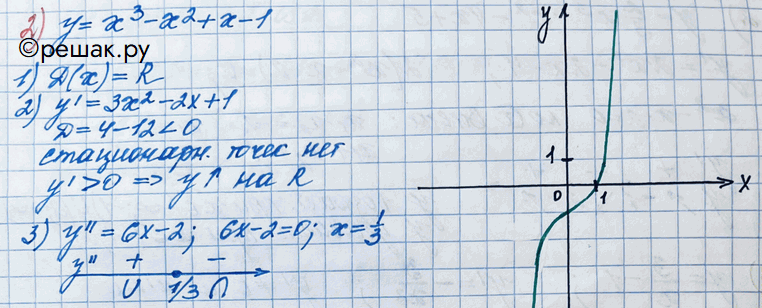 2) y = x³ - x² + x - 1
©решак.ру
1) D(x) = R
2) y' = 3x² - 2x + 1
D = 4 - 12 < 0
стационарн. точек нет
y' > 0 => y↑ на R
3) y'' = 6x - 2; 6x - 2 = 0; x = 1/3
y'' + -
∪ 1/3 ∩
y
1
0 1 x